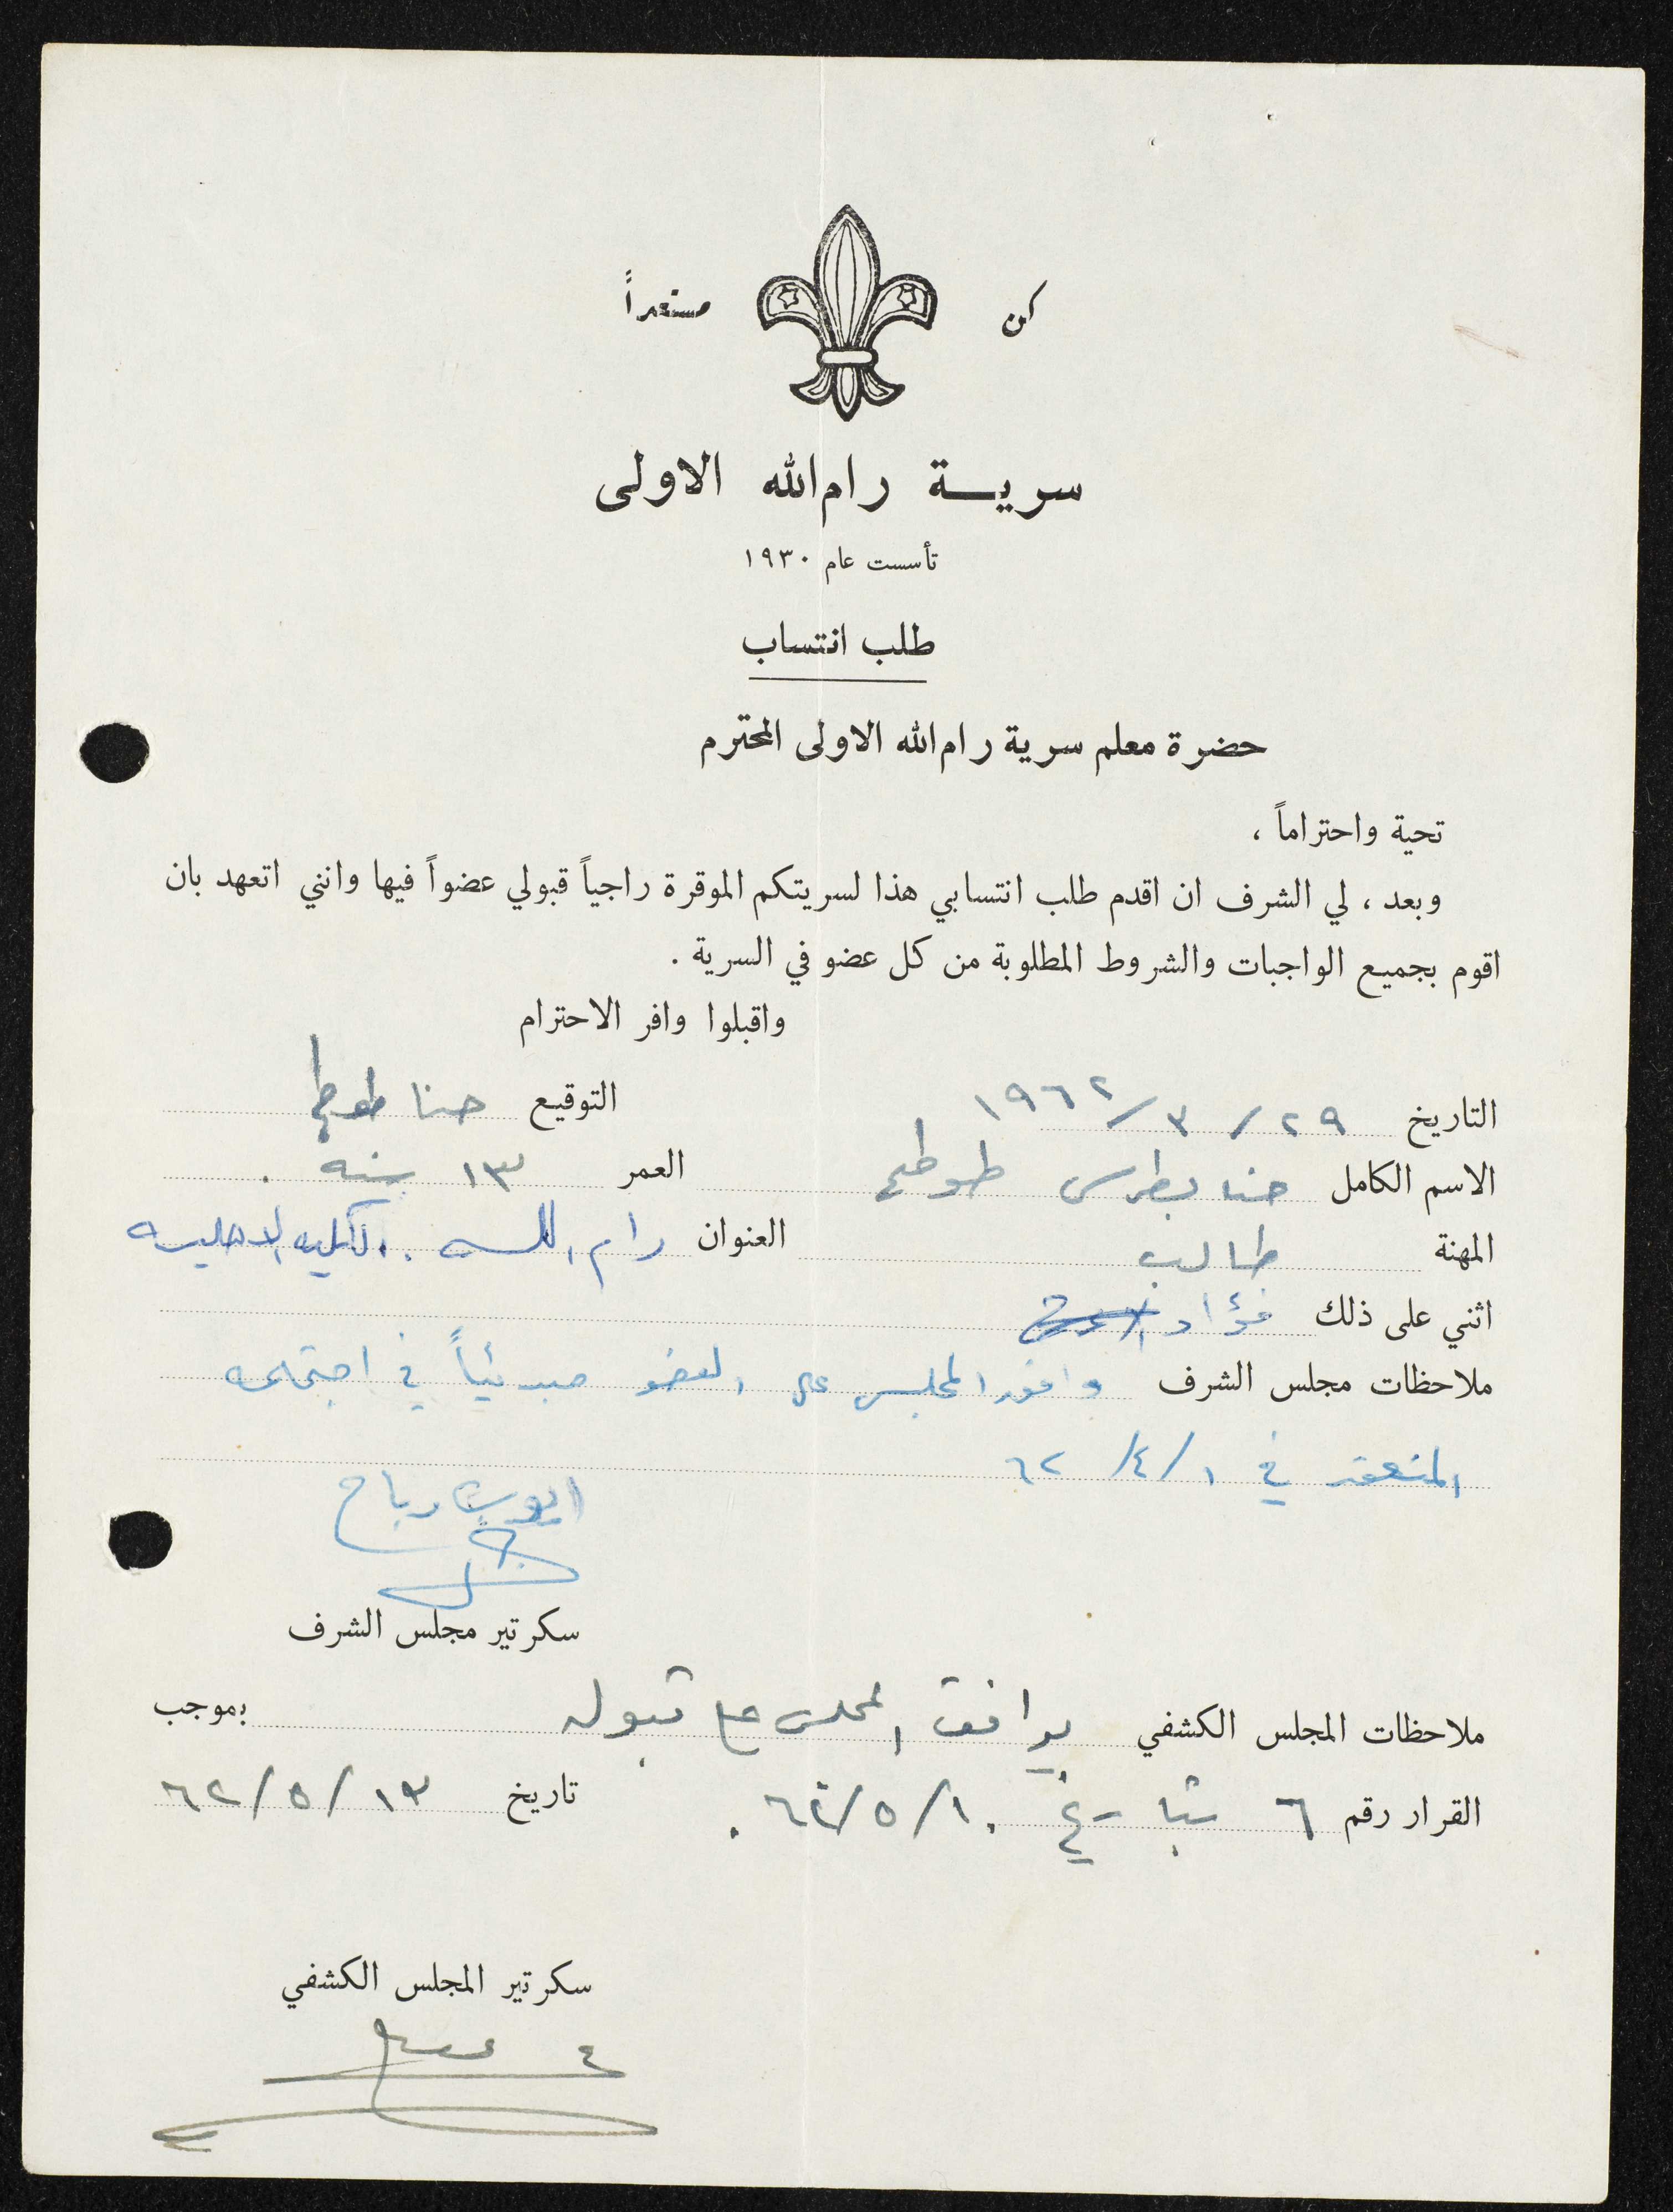 كن مستعداً
سريـــة رام الله الاولى
تأسست عام ١٩٣٠
طلب انتساب
حضرة معلم سرية رام الله الاولى المحترم
تحية واحتراماً ،
وبعد ، لي الشرف ان اقدم طلب انتسابي هذا لسريتكم الموقرة راجياً قبولي عضواً فيها وانني اتعهد بان
اقوم بجميع الواجبات والشروط المطلوبة من كل عضو في السرية .
واقبلوا وافر الاحترام
التاريخ ٢٩ / ٣ / ١٩٦٢ التوقيع حنا طوطح
الاسم الكامل حنا بطرس طوطح العمر ١٣ سنه .
المهنة طالب العنوان رام الله . الكليه الاهليه
اثني على ذلك فؤاد
ملاحظات مجلس الشرف وافق المجلس على العضو مبدئياً في اجتماعه
المنعقد في ١ / ٤ / ٦٢
ايوب رباح
سكرتير مجلس الشرف
ملاحظات المجلس الكشفي يوافق المجلس على قبوله بموجب
القرار رقم ٦ بتاريخ ١٠ / ٥ / ٦٢ . تاريخ ١٣ / ٥ / ٦٢
سكرتير المجلس الكشفي